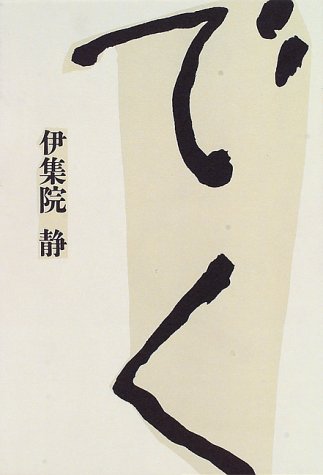 でく
伊集院 静